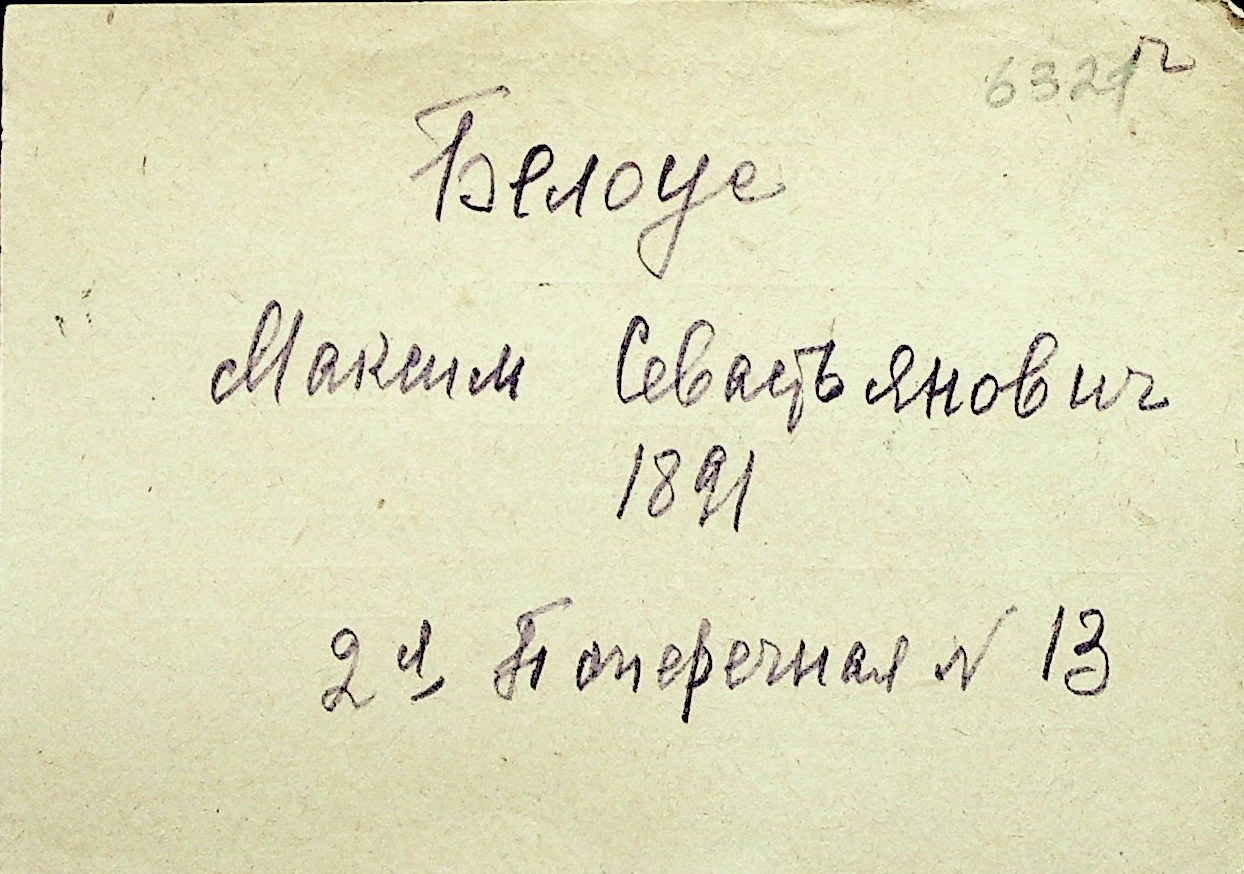 6321
г
Белоус
Максим Севастьянович
1891
2я Поперечная N 13